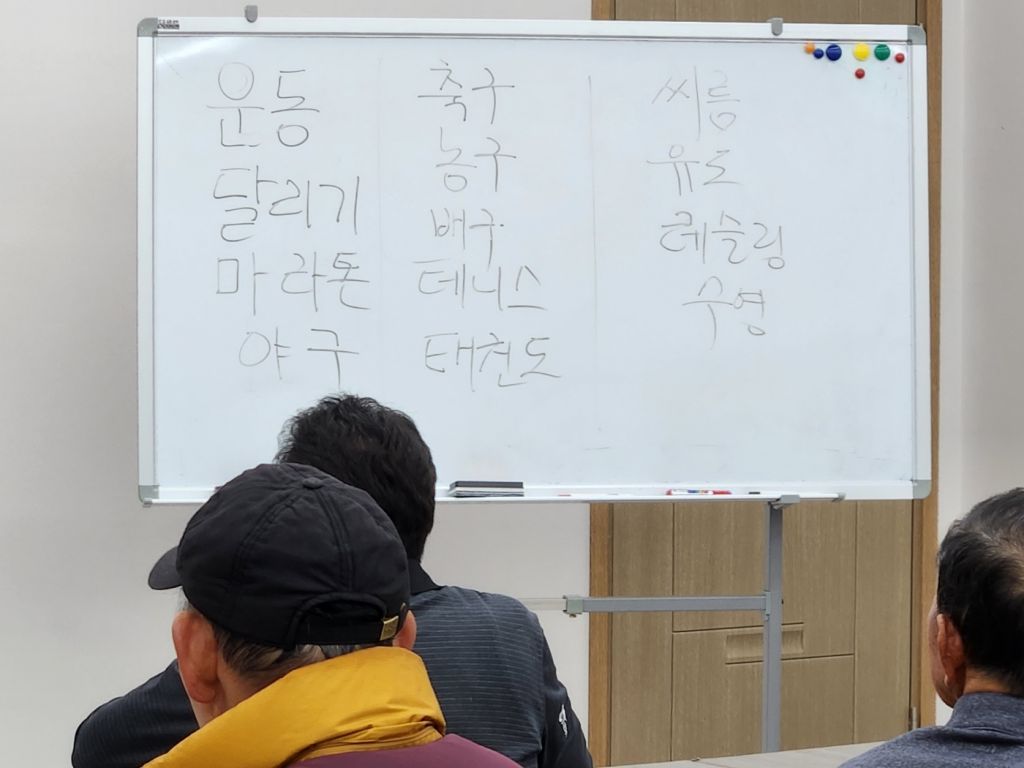 운동
달리기
마라톤
야구
축구
농구
배구
테니스
태권도
씨름
유도
레슬링
수영